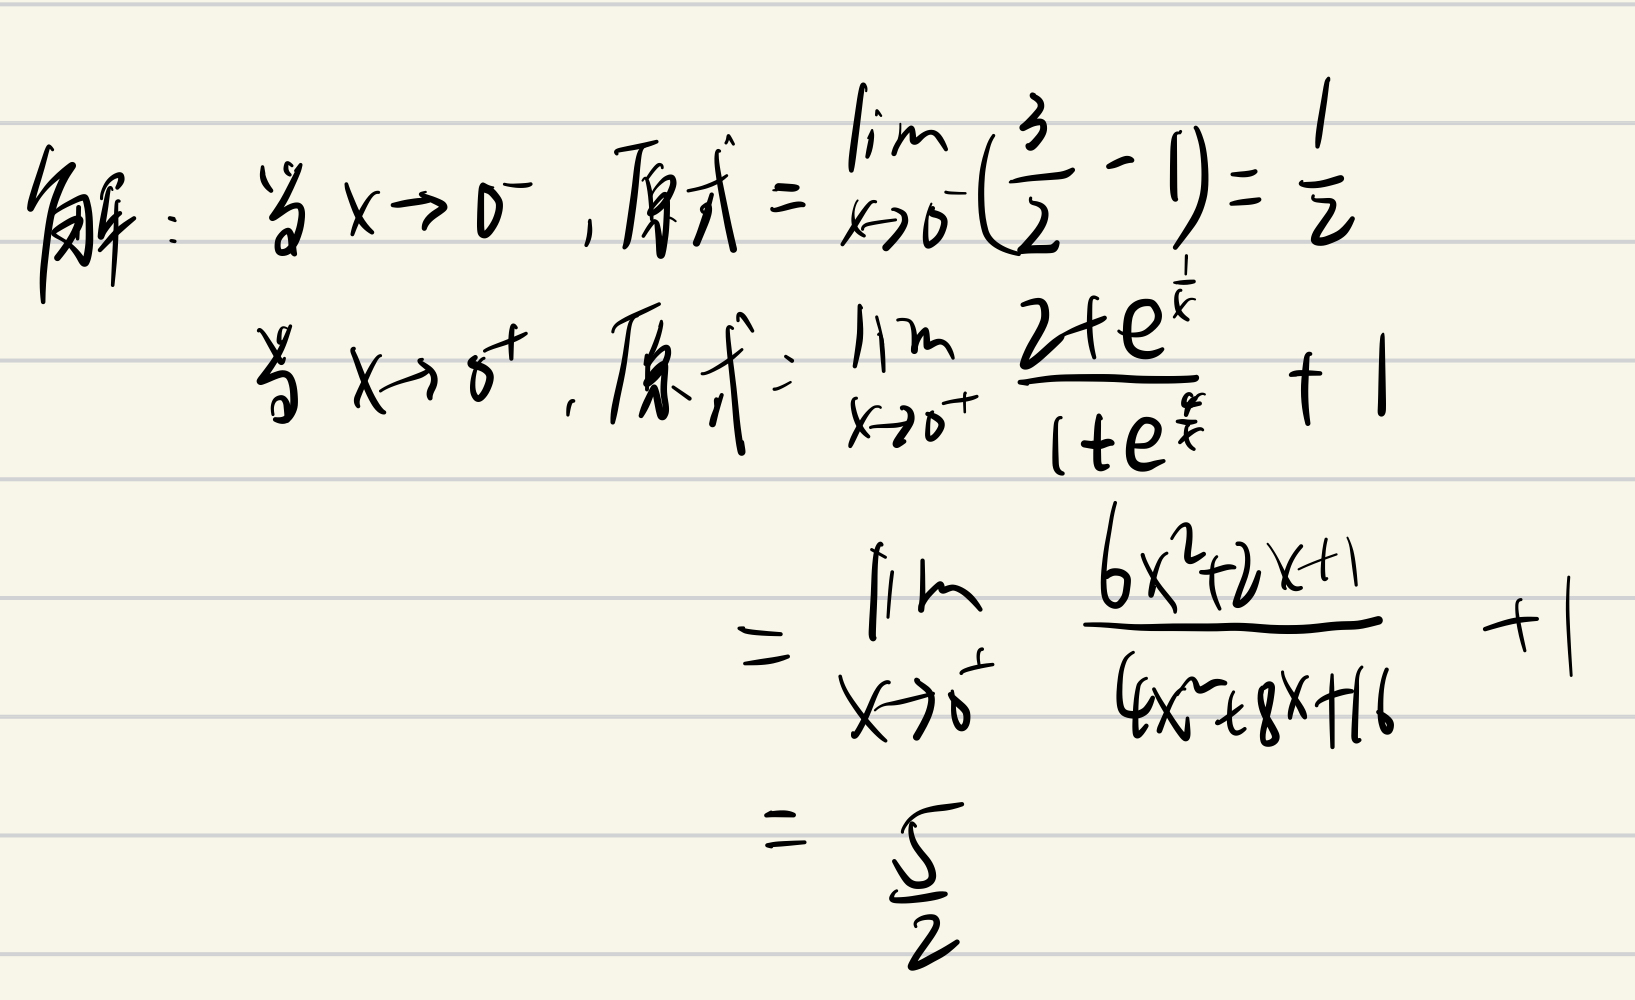 解: 当 x→0⁻, 原式 = lim_{x→0⁻} (3/2 - 1) = 1/2
当 x→0⁺, 原式 = lim_{x→0⁺} (2+e^{1/x})/(1+e^{4/x}) + 1
= lim_{x→0⁺} (6x²+2x+1)/(4x²+8x+16) + 1
= 5/2